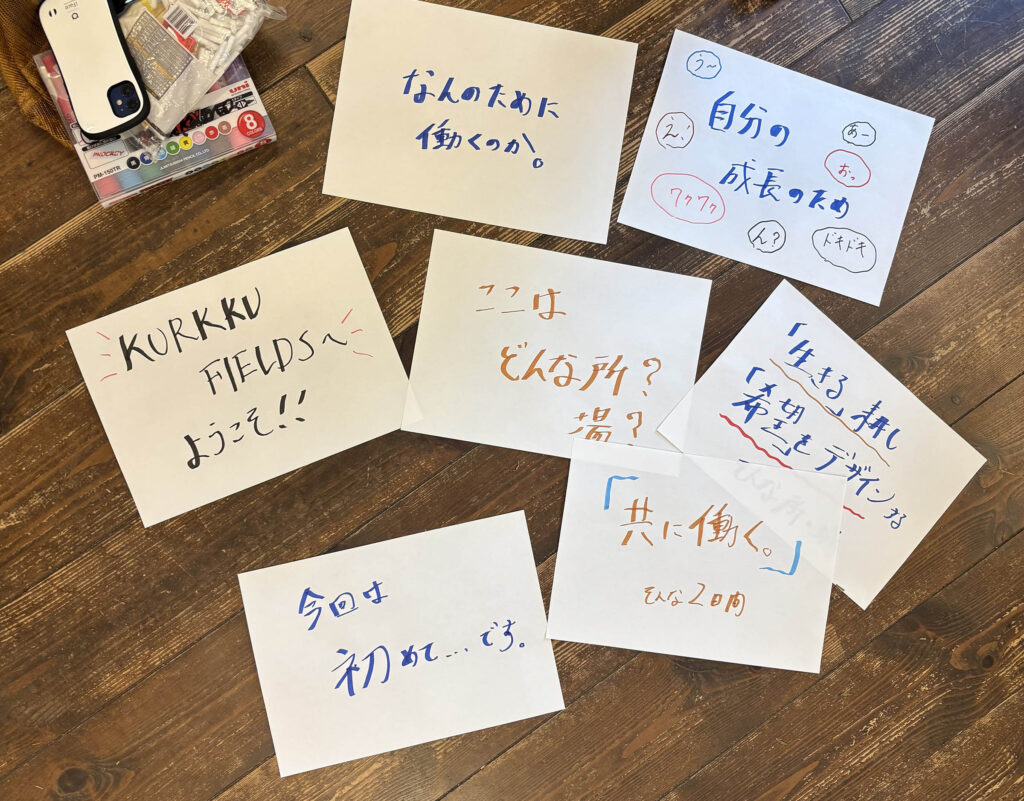 なんのために
働くのか。
う〜
自分の
え、!
あー
おっ
成長のため
ワクワク
ん?
ドキドキ
KURKKU
FIELDSへ
ようこそ!!
ここは
どんな所?
場?
「生きる」耕し
「希望」を
デザインする
「共に働く。」
そんな2日間
今回は
初めて...です。
uni
8
PROCKEY
PM-150TR
MITSUBISHI PENCIL CO.,LTD.
iFace